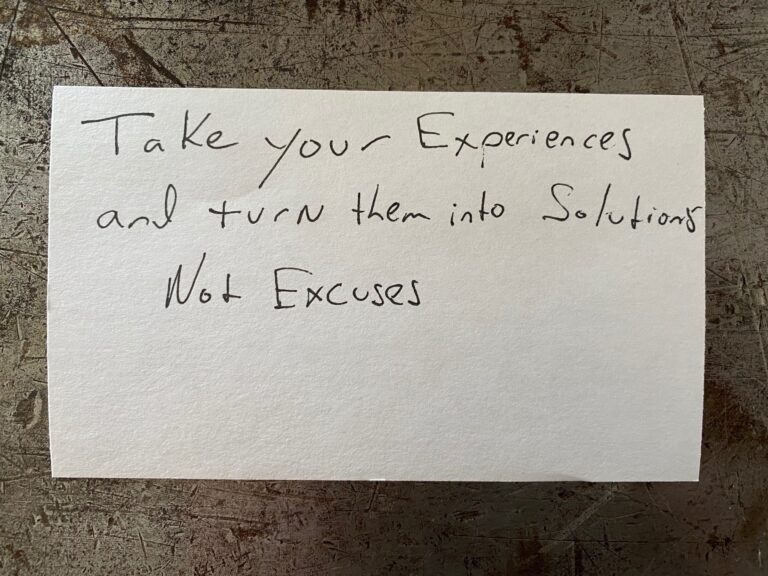 Take your Experiences
and turn them into Solutions
Not Excuses